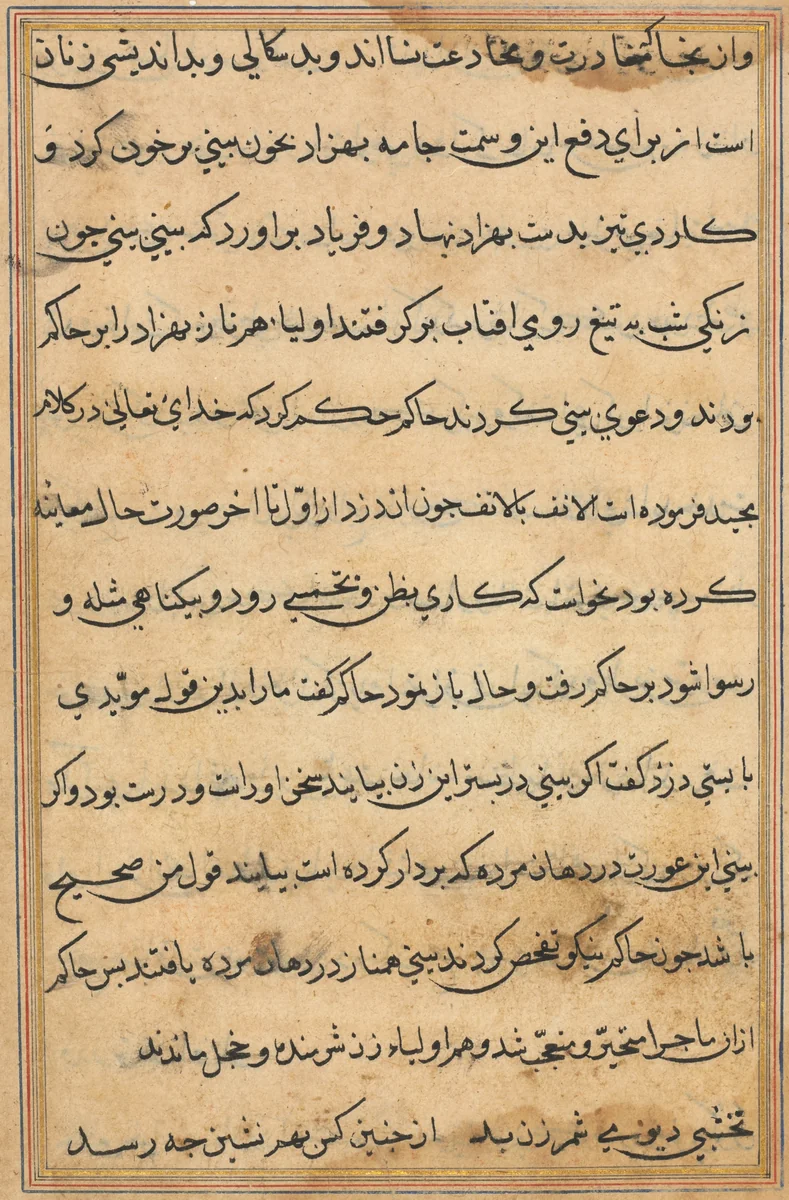 واز بخا كنغادرت و مخادعت نسا اند و بد سكالي و بد انديشي زنان
است از براي دفع اين وسمت جامه بهزاد بخون بيني برخون كرد و
كاردي تيز بدست بهزاد نهاد و فرياد براورد كه بيني بيني جون
زنكي شب به تيغ روي افتاب بركرفتند اوليا همناز بهزاد را بر حاكم
بردند و دعوي بيني كردند حاكم حكم كرد كه خداي تعالي در كلام
مجيد فرموده است الانف بالانف جون اندزد از اوّل تا اخر صورت حال معاينه
كرده بود نخواست كه كاري بظن و تخمين رود و بيكناهي مثله و
رسوا شود بر حاكم رفت و حال باز نمود حاكم كفت ما را بدين قول مويّدي
بايستي دزد كفت اكر بيني در بستر اين زن بيابند سخن او راست و درست بود و اكر
بيني اين عورت در دهان مرده كه بر دار كرده است بيابند قول من صحيح
باشد جون حاكم نيكو تفحص كردند بيني همناز در دهان مرده يافتند بس حاكم
ازان ماجرا متحيّر و متعجّب شد و هم اولياء زن شرمنده و خجل ماندند
نخشبي ديو مي شمر زن بد از جنين كس بهم نشين جه رسد